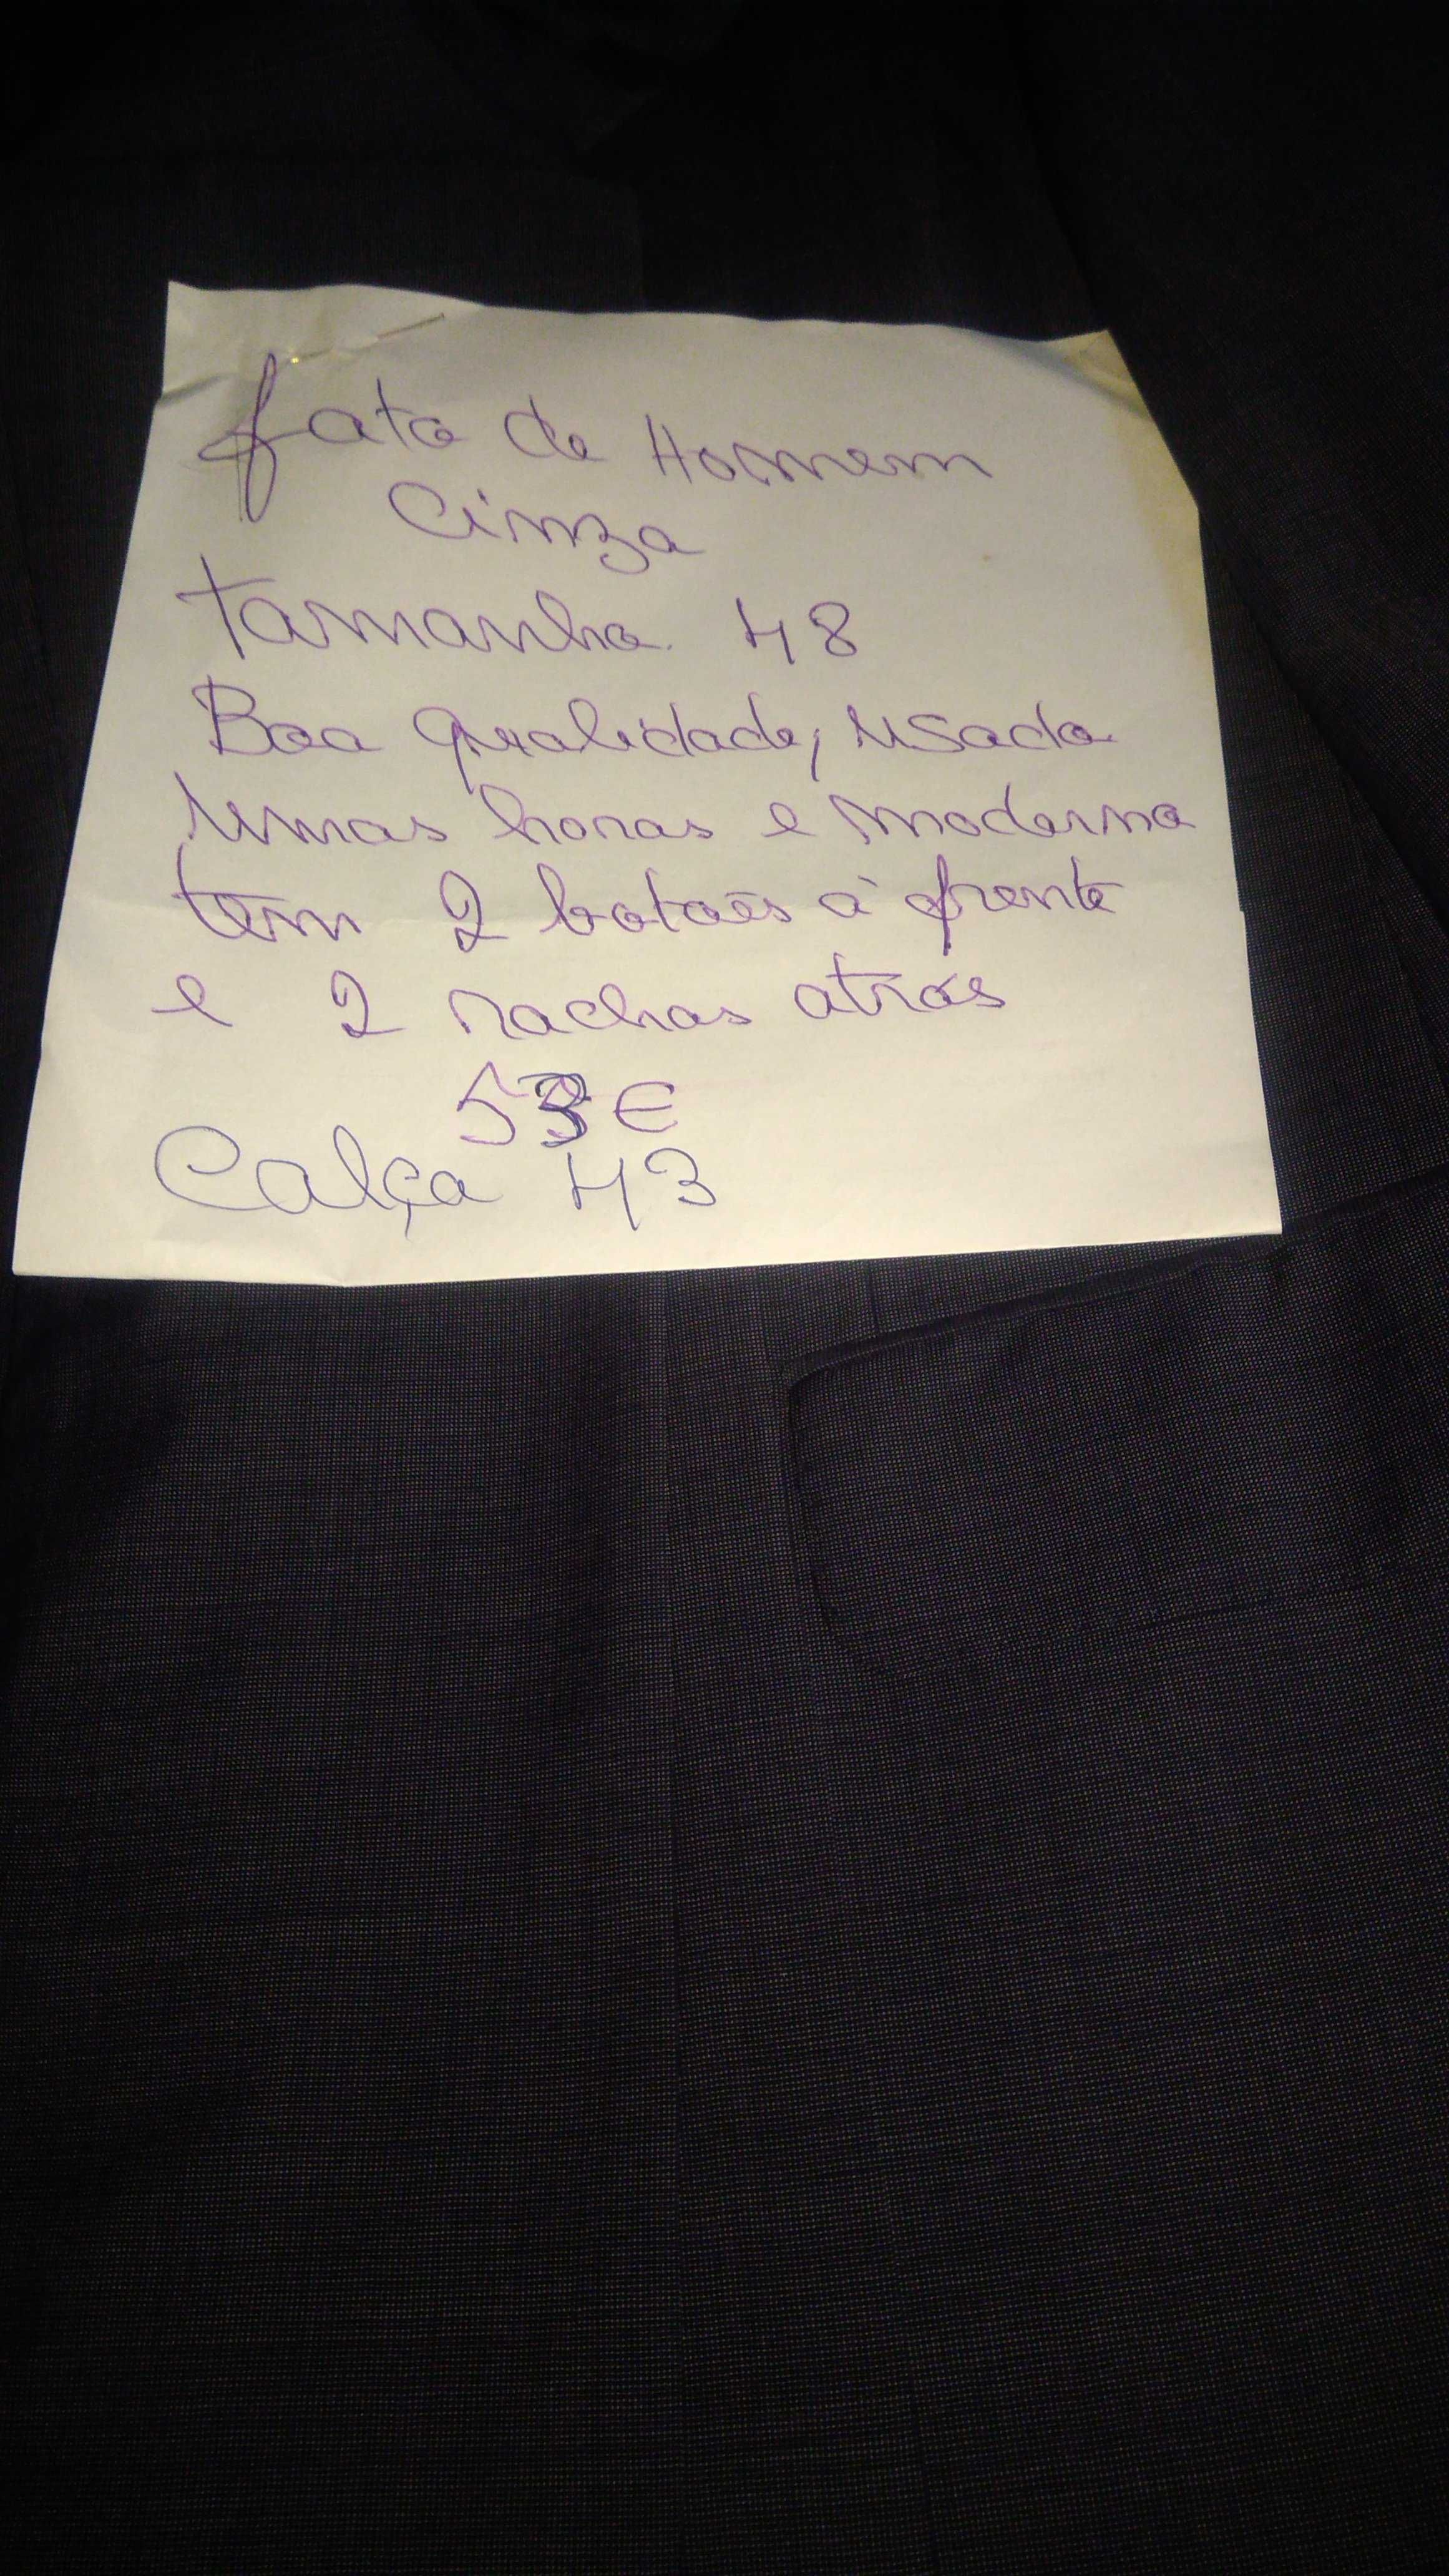 fato de Homem
Cinza
tamanho 48
Boa qualidade, usado
umas horas e moderno
tem 2 botoēs à frente
e 2 rachas atrás
€
Calça 43